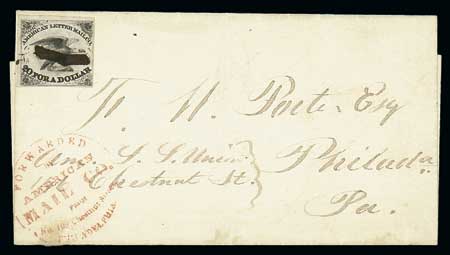 AMERICAN LETTER MAIL CO.
20 FOR A DOLLAR
T. H. Porter Esq
Am. S. S. Union Philada
Chestnut St.
Pa.
FORWARDED
AMERICAN
MAIL CO.
From
No. Chestnut Street
PHILADELPHIA